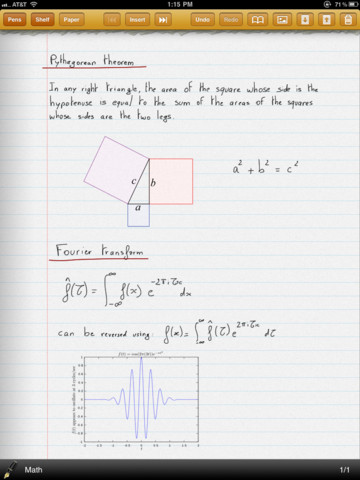 AT&T 1:15 PM 71%
Pens Shelf Paper Insert Undo Redo
Pythegorean theorem
In any right triangle, the area of the square whose side is the
hypotenuse is equal to the sum of the areas of the squares
whose sides are the two legs.
c b
a
a² + b² = c²
Fourier transform
f̂(τ) = ∫_{-∞}^{+∞} f(x) e^{-2πiτx} dx
can be reversed using: f(x) = ∫_{-∞}^{∞} f̂(τ) e^{2πiτx} dτ
Math 1/1